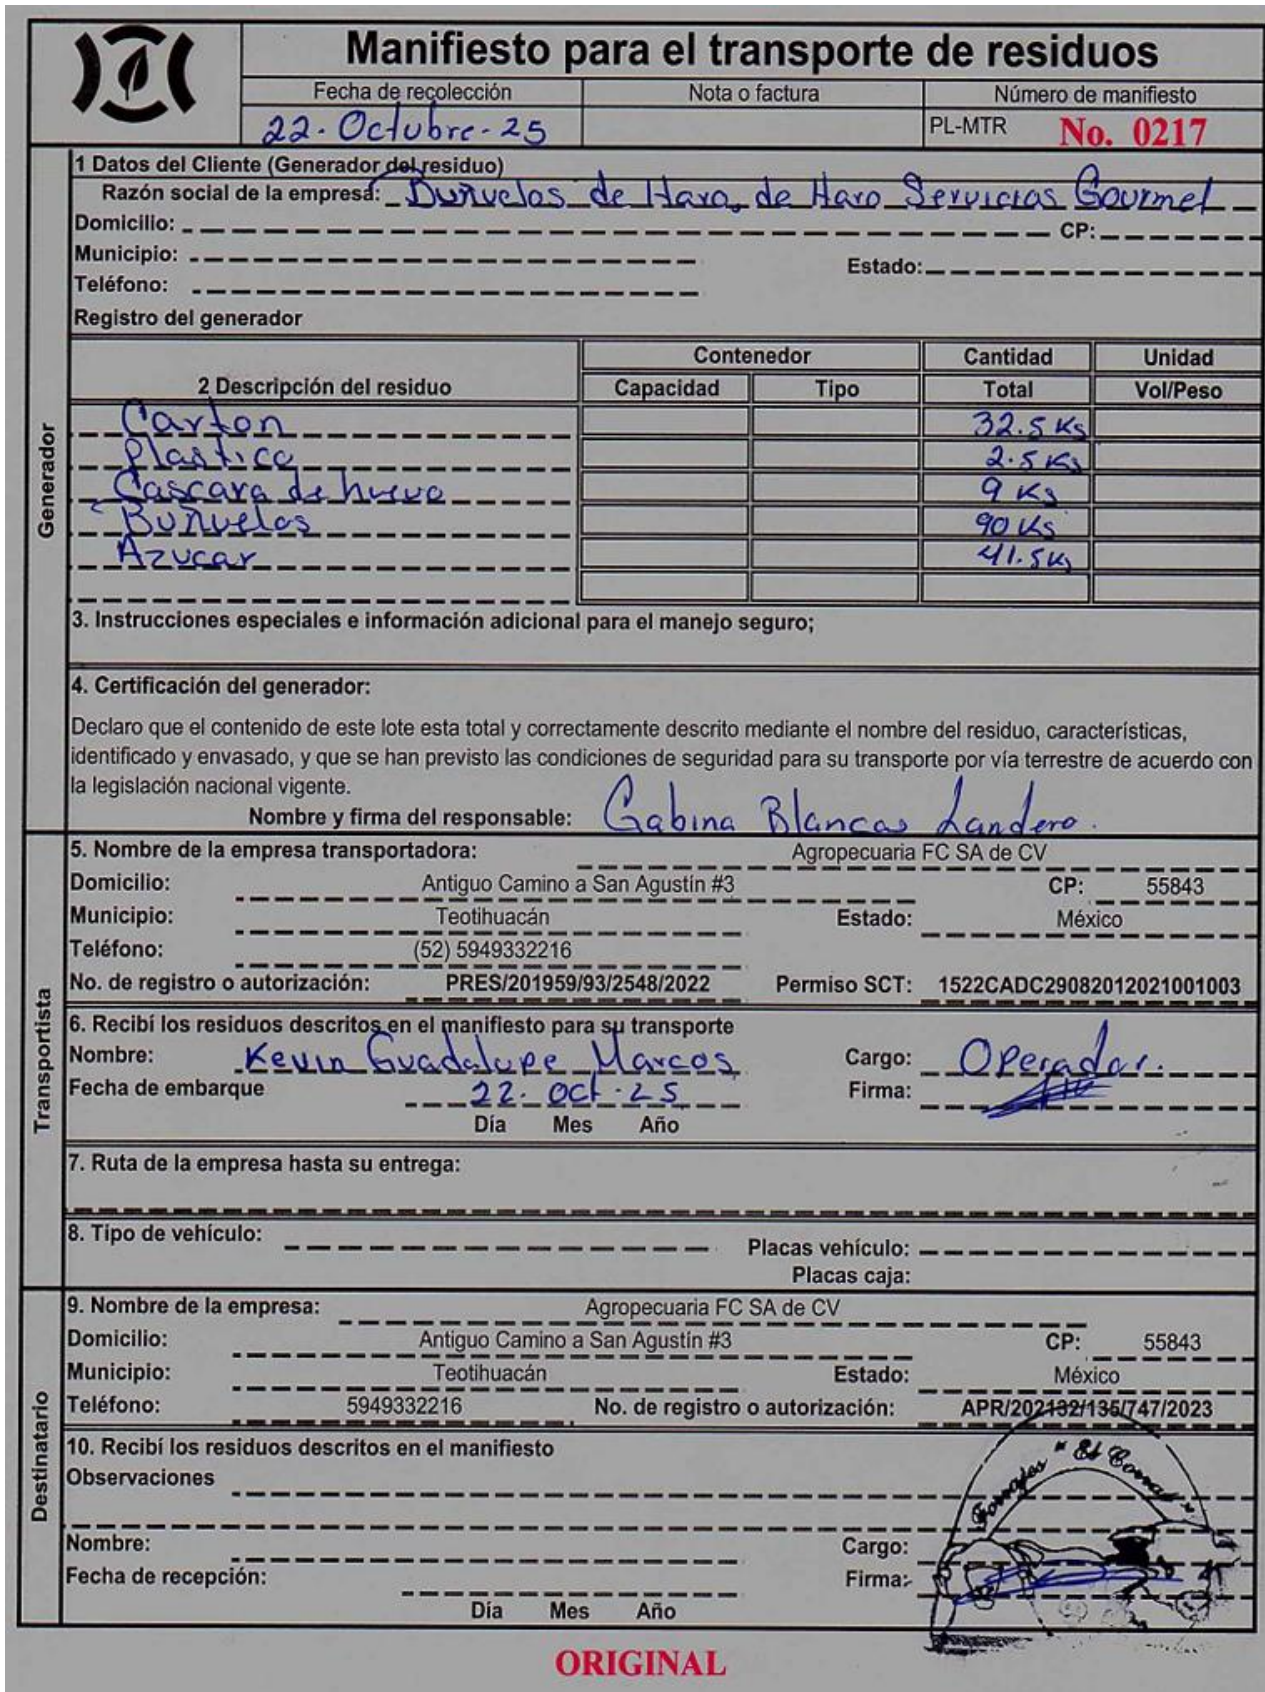 Manifiesto para el transporte de residuos
Fecha de recolección Nota o factura Número de manifiesto
22. Octubre. 25 PL-MTR No. 0217
1 Datos del Cliente (Generador del residuo)
Razón social de la empresa: Buñuelos de Haro, de Haro Servicios Gourmet
Domicilio: CP:
Municipio: Estado:
Teléfono:
Registro del generador
Contenedor Cantidad Unidad
2 Descripción del residuo Capacidad Tipo Total Vol/Peso
Carton 32.5 Kg
Plastico 2.5 Kg
Cascara de huevo 9 Kg
Buñuelos 90 Kg
Azucar 41.5 Kg
Generador
3. Instrucciones especiales e información adicional para el manejo seguro;
4. Certificación del generador:
Declaro que el contenido de este lote esta total y correctamente descrito mediante el nombre del residuo, características,
identificado y envasado, y que se han previsto las condiciones de seguridad para su transporte por vía terrestre de acuerdo con
la legislación nacional vigente.
Nombre y firma del responsable: Gabina Blancas Landero.
5. Nombre de la empresa transportadora: Agropecuaria FC SA de CV
Domicilio: Antiguo Camino a San Agustín #3 CP: 55843
Municipio: Teotihuacán Estado: México
Teléfono: (52) 5949332216
No. de registro o autorización: PRES/201959/93/2548/2022 Permiso SCT: 1522CADC29082012021001003
Transportista
6. Recibí los residuos descritos en el manifiesto para su transporte
Nombre: Kevin Guadalupe Marcos Cargo: Operador.
Fecha de embarque 22. Oct. 25 Firma:
Día Mes Año
7. Ruta de la empresa hasta su entrega:
8. Tipo de vehículo: Placas vehículo:
Placas caja:
9. Nombre de la empresa: Agropecuaria FC SA de CV
Domicilio: Antiguo Camino a San Agustín #3 CP: 55843
Municipio: Teotihuacán Estado: México
Teléfono: 5949332216 No. de registro o autorización: APR/202132/135/747/2023
Destinatario
10. Recibí los residuos descritos en el manifiesto
Observaciones
Forrajes "El Corral"
Nombre: Cargo:
Fecha de recepción: Firma:
Día Mes Año
ORIGINAL